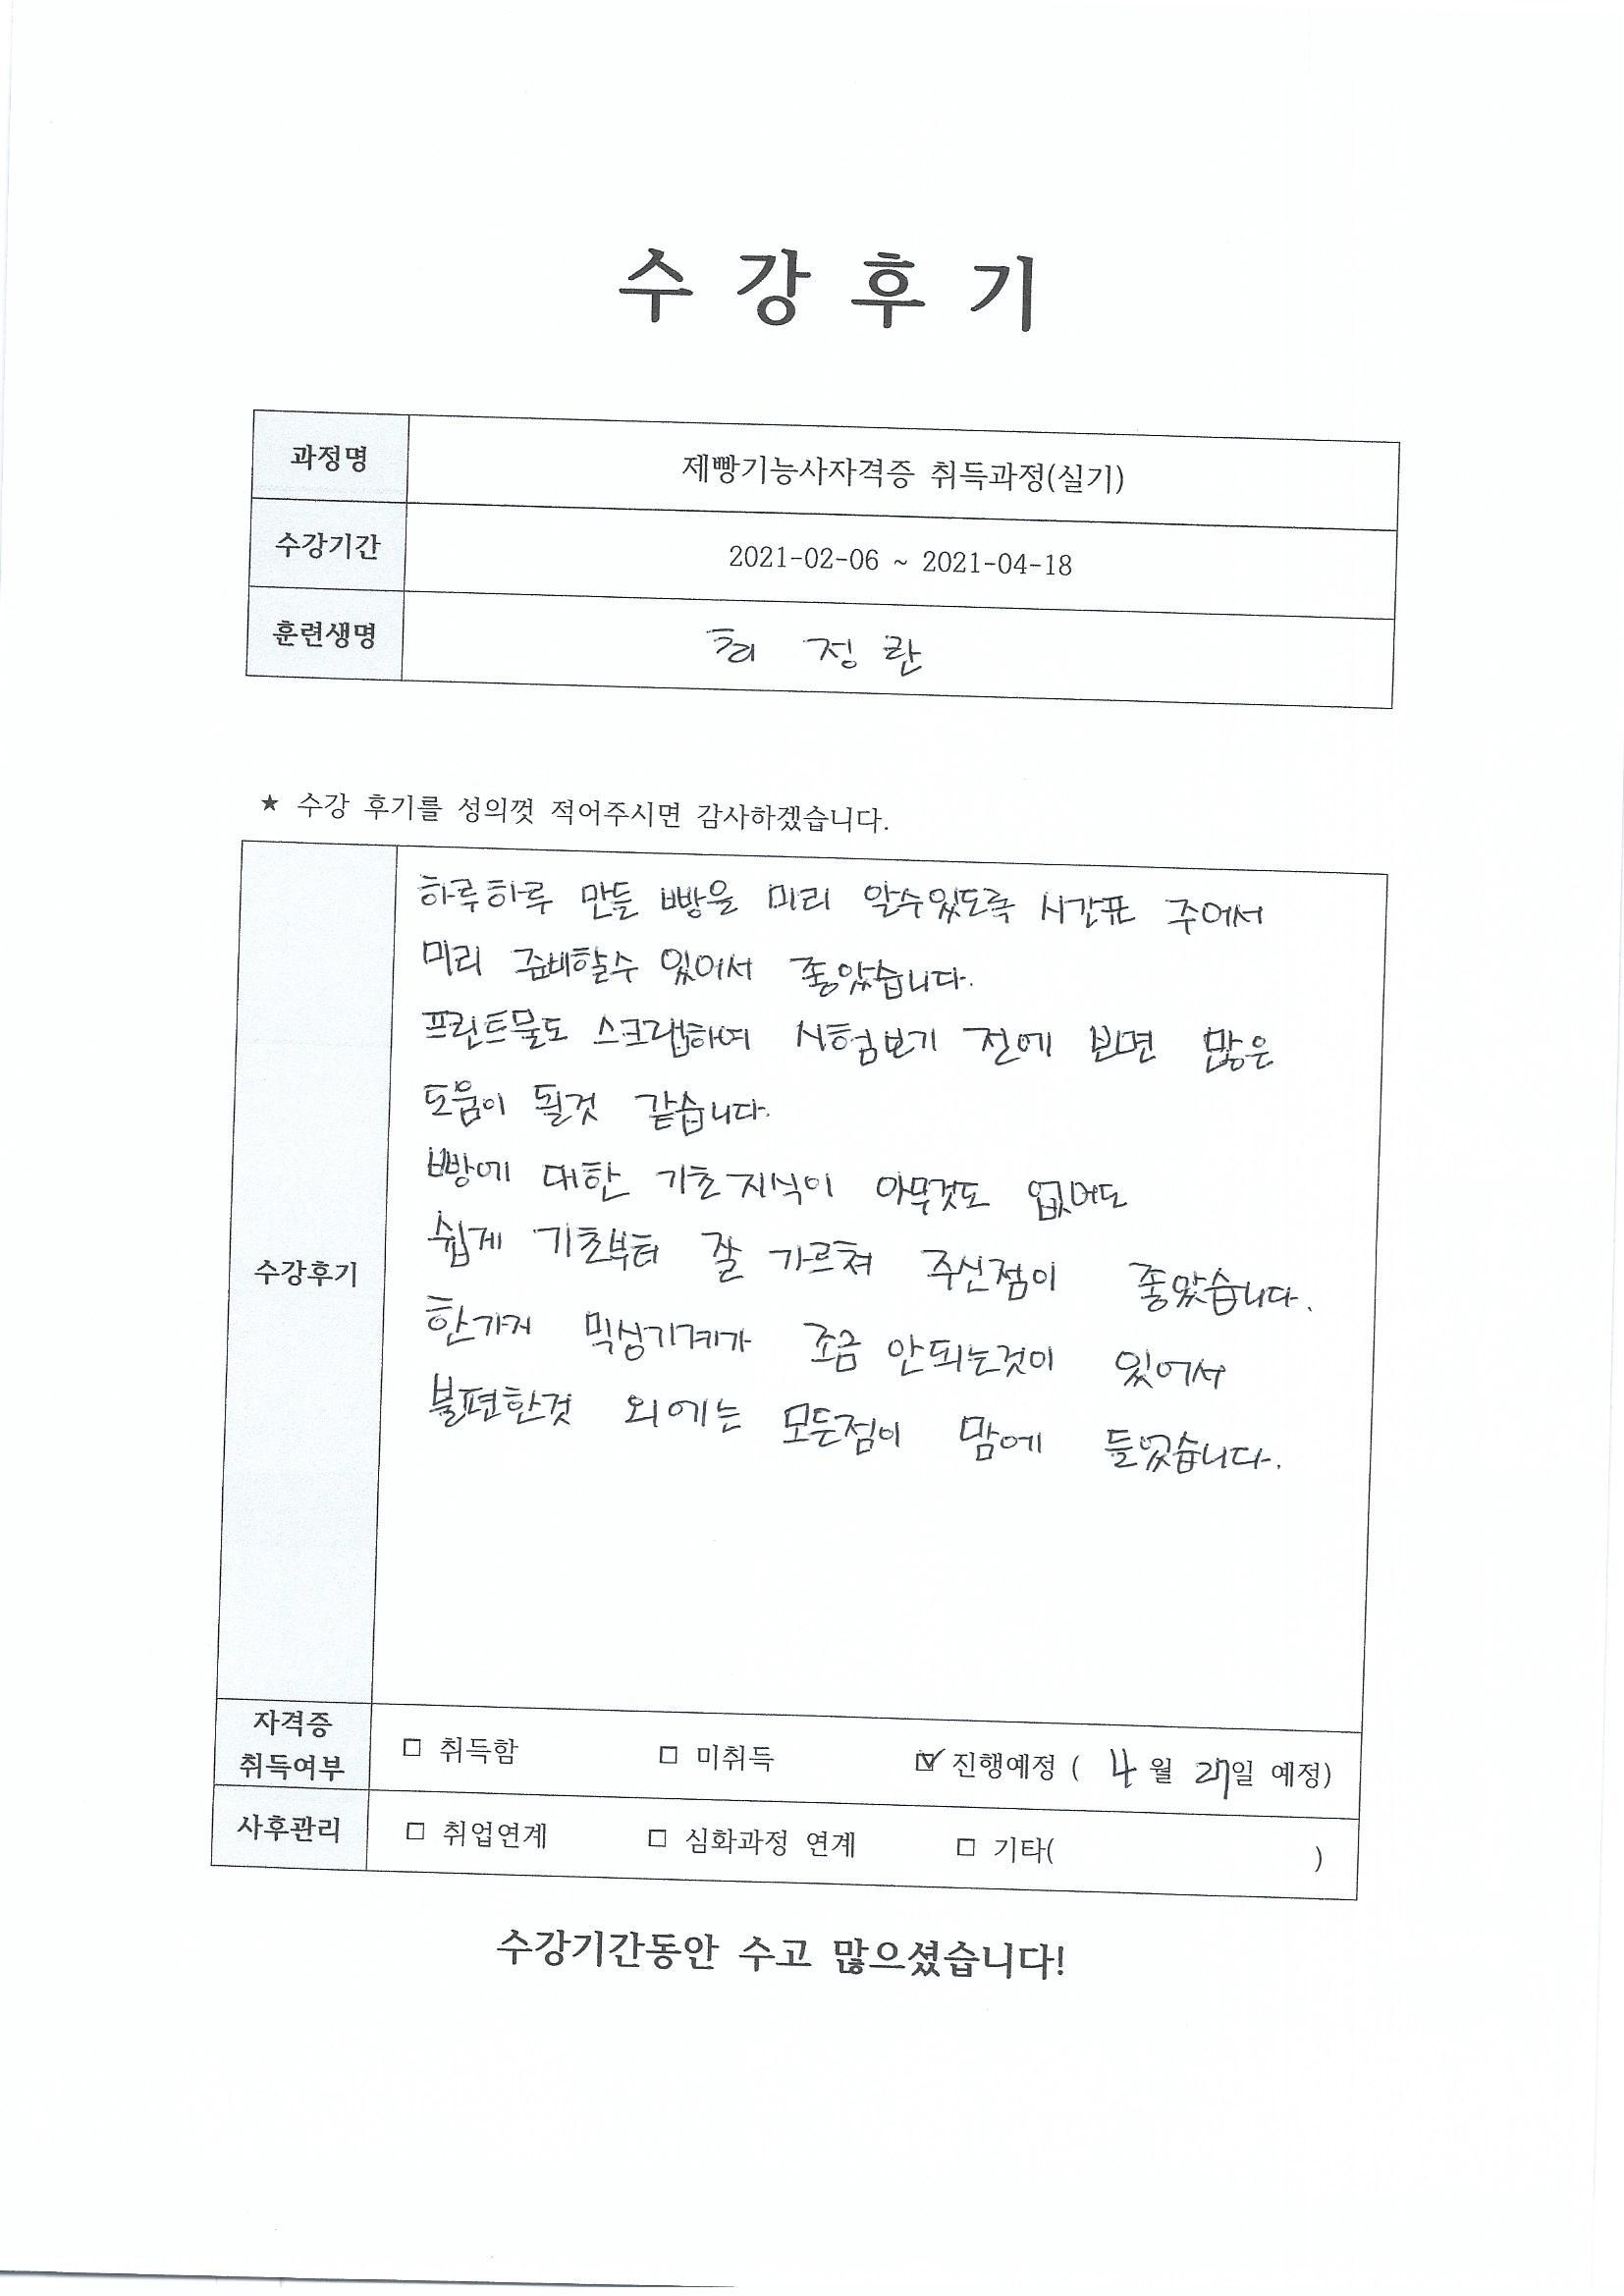 수강후기
과정명 제빵기능사자격증 취득과정(실기)
수강기간 2021-02-06 ~ 2021-04-18
훈련생명 최 정 란
★ 수강 후기를 성의껏 적어주시면 감사하겠습니다.
수강후기
하루하루 만들 빵을 미리 알수있도록 시간표 주어서
미리 준비할수 있어서 좋았습니다.
프린트물도 스크랩하여 시험보기 전에 보면 많은
도움이 될것 같습니다.
빵에 대한 기초지식이 아무것도 없어도
쉽게 기초부터 잘 가르쳐 주신점이 좋았습니다.
한가지 믹싱기계가 조금 안되는것이 있어서
불편한것 외에는 모든점이 맘에 들었습니다.
자격증
취득여부 □ 취득함 □ 미취득 ☑ 진행예정 ( 4월 27일 예정)
사후관리 □ 취업연계 □ 심화과정 연계 □ 기타( )
수강기간동안 수고 많으셨습니다!